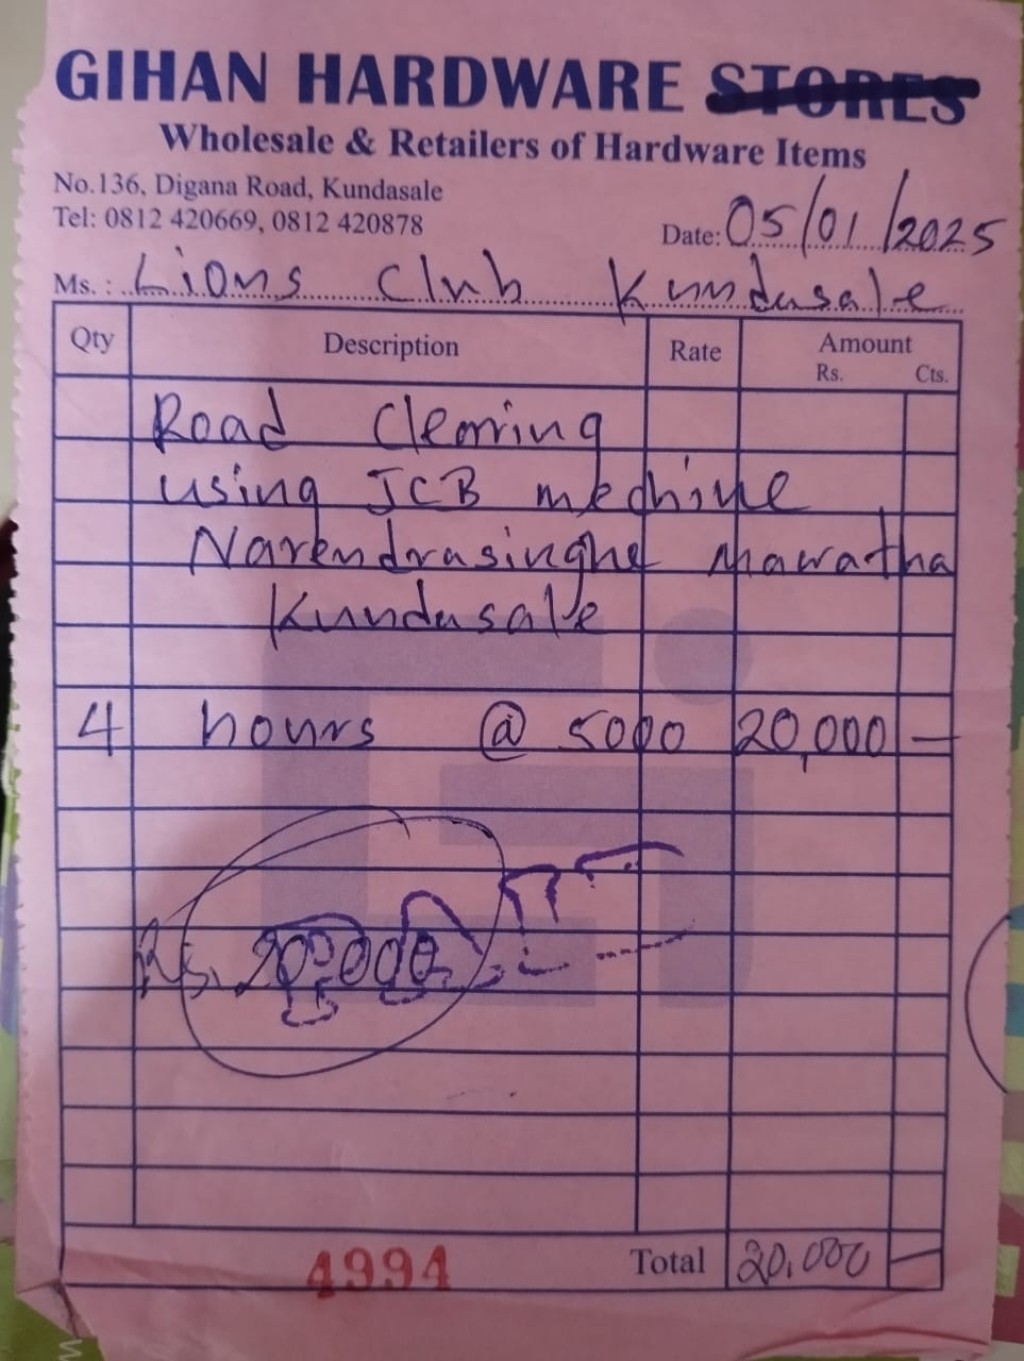 GIHAN HARDWARE STORES
Wholesale & Retailers of Hardware Items
No.136, Digana Road, Kundasale
Tel: 0812 420669, 0812 420878
Date: 05/01/2025
Ms. : Lions Club Kundasale
Qty Description Rate Amount
Rs. Cts.
Road Clearing
using JCB mechine
Narendrasinghe Mawatha
Kundasale
4 hours @ 5000 20,000 —
Rs. 20,000
4994 Total 20,000 —